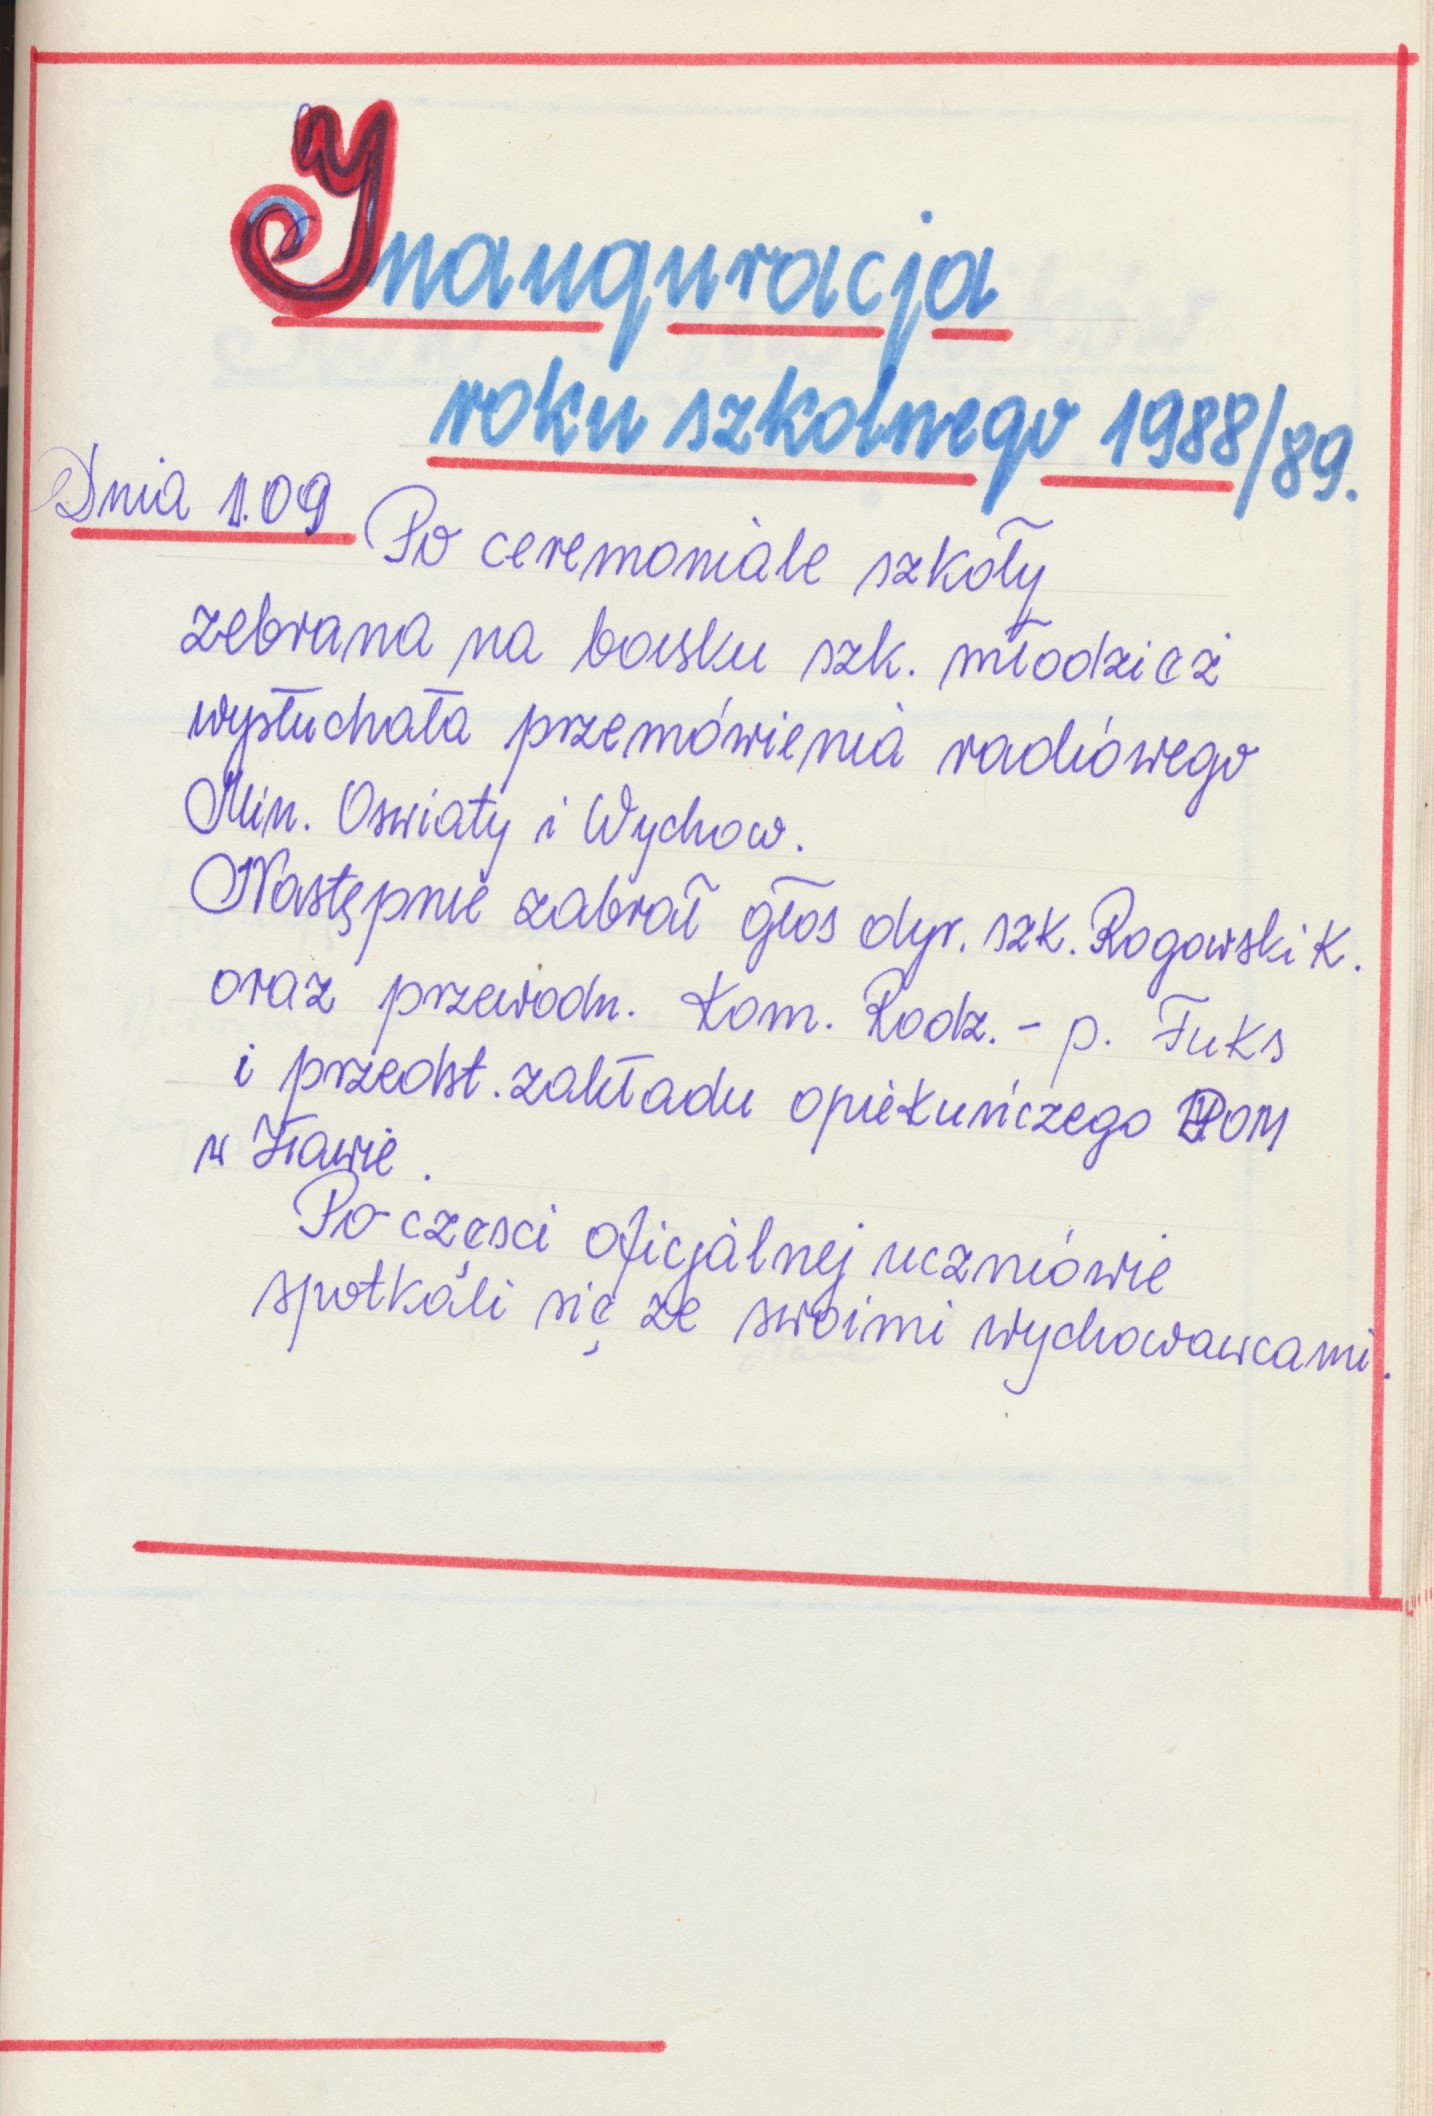 Inauguracja
roku szkolnego 1988/89.
Dnia 1.09 Po ceremoniale szkoły
zebrana na boisku szk. młodzież
wysłuchała przemówienia radiowego
Min. Oswiaty i Wychow.
Następnie zabrał głos dyr. szk. Rogowski K.
oraz przewodn. Kom. Rodz. - p. Fuks
i przedst. zakładu opiekuńczego POM
w Iławie.
Po częsci oficjalnej uczniowie
spotkali się ze swoimi wychowawcami.